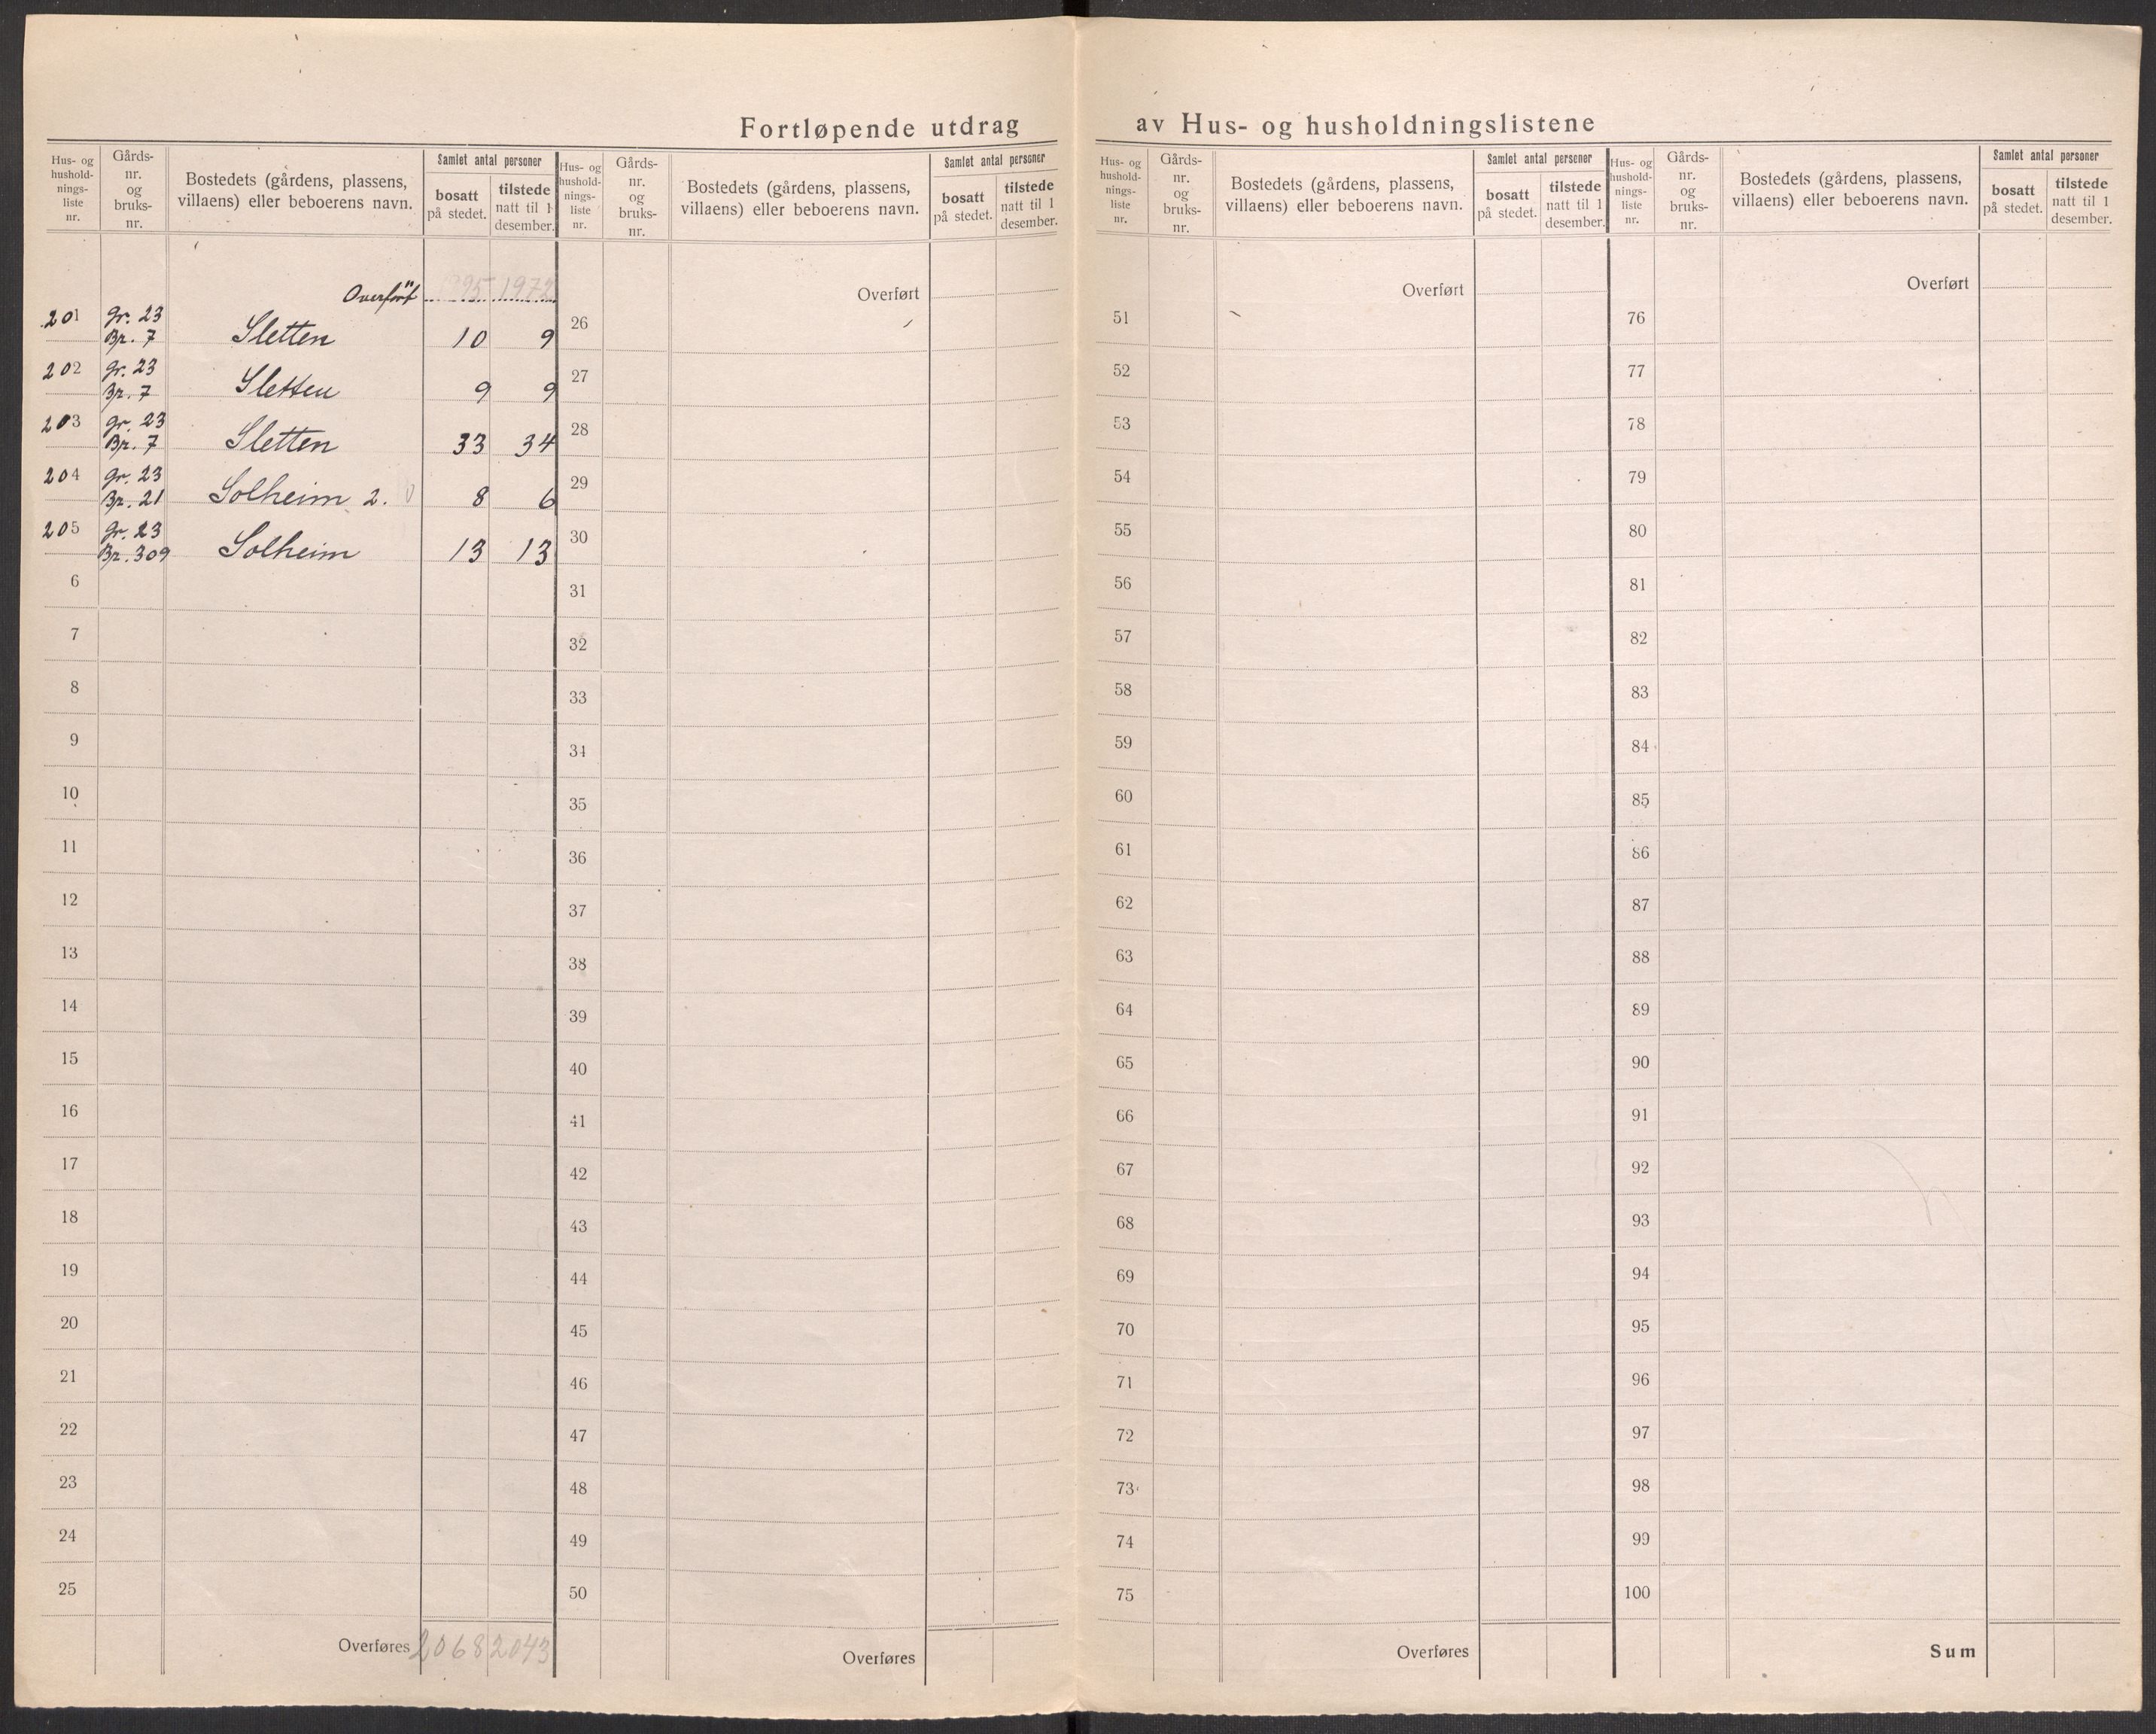 Fortløpende utdrag av Hus- og husholdningslistene
Hus- og
hushold-
nings-
liste
nr.
Gårds-
nr.
og
bruks-
nr.
Bostedets (gårdens, plassens,
villaens) eller beboerens navn.
Samlet antal personer
bosatt
på stedet.
tilstede
natt til 1
desember.
Overført 1972
201 Gr. 23
Br. 7 Sletten 10 9
202 Gr. 23
Br. 7 Sletten 9 9
203 Gr. 23
Br. 7 Sletten 33 34
204 Gr. 23
Br. 21 Solheim 2. 8 6
205 Gr. 23
Br. 309 Solheim 13 13
6
7
8
9
10
11
12
13
14
15
16
17
18
19
20
21
22
23
24
25
Overføres 2068 2043
Hus- og
hushold-
nings-
liste
nr.
Gårds-
nr.
og
bruks-
nr.
Bostedets (gårdens, plassens,
villaens) eller beboerens navn.
Samlet antal personer
bosatt
på stedet.
tilstede
natt til 1
desember.
Overført
26
27
28
29
30
31
32
33
34
35
36
37
38
39
40
41
42
43
44
45
46
47
48
49
50
Overføres
Hus- og
hushold-
nings-
liste
nr.
Gårds-
nr.
og
bruks-
nr.
Bostedets (gårdens, plassens,
villaens) eller beboerens navn.
Samlet antal personer
bosatt
på stedet.
tilstede
natt til 1
desember.
Overført
51
52
53
54
55
56
57
58
59
60
61
62
63
64
65
66
67
68
69
70
71
72
73
74
75
Overføres
Hus- og
hushold-
nings-
liste
nr.
Gårds-
nr.
og
bruks-
nr.
Bostedets (gårdens, plassens,
villaens) eller beboerens navn.
Samlet antal personer
bosatt
på stedet.
tilstede
natt til 1
desember.
Overført
76
77
78
79
80
81
82
83
84
85
86
87
88
89
90
91
92
93
94
95
96
97
98
99
100
Sum